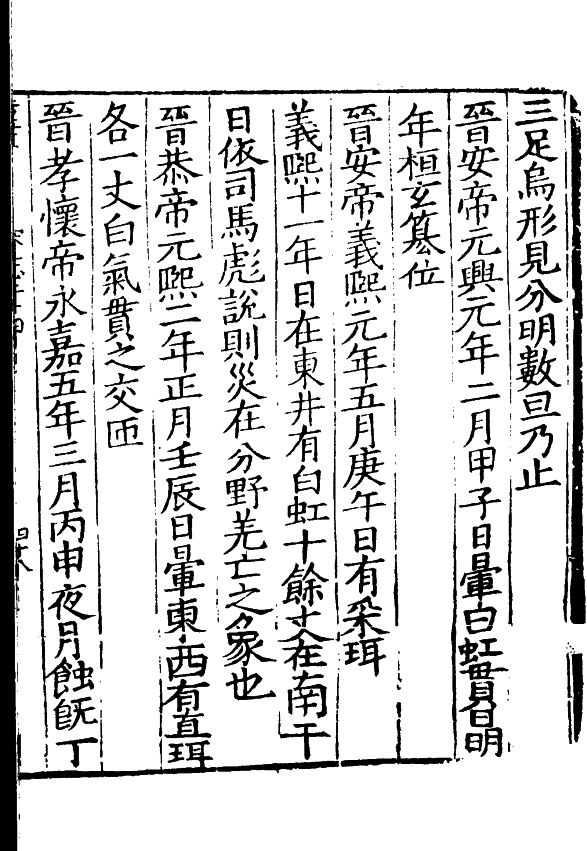 三足烏形見分明數旦乃止
晉安帝元興元年二月甲子日暈白虹貫日明
年桓玄簒位
晉安帝義熈元年五月庚午日有采珥
義熈十一年日在東井有白虹十餘丈在南干
日依司馬彪說則災在分野羌亡之象也
晉恭帝元熈二年正月壬辰日暈東西有直珥
各一丈白氣貫之交匝
晉孝懷帝永嘉五年三月丙申夜月蝕旣丁
四十八